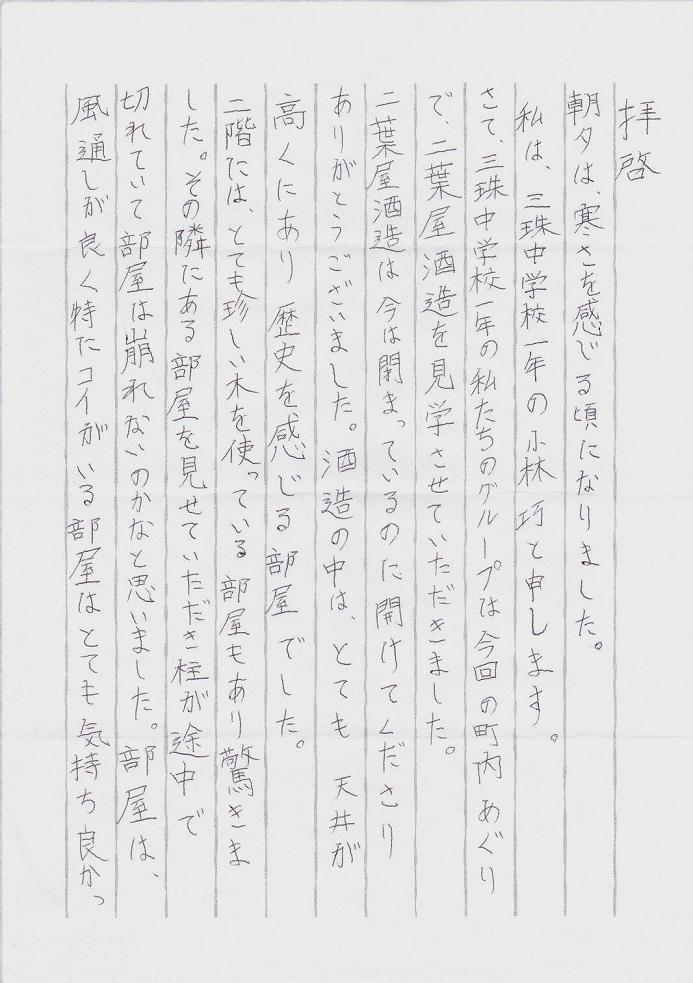 拝啓
朝夕は、寒さを感じる頃になりました。
私は、三珠中学校一年の小林巧と申します。
さて、三珠中学校一年の私たちのグループは今回の町内めぐり
で、二葉屋酒造を見学させていただきました。
二葉屋酒造は今は閉まっているのに開けてくださり
ありがとうございました。酒造の中は、とても天井が
高くにあり歴史を感じる部屋でした。
二階には、とても珍しい木を使っている部屋もあり驚きま
した。その隣にある部屋を見せていただき柱が途中で
切れていて部屋は崩れないのかなと思いました。部屋は、
風通しが良く特にコイがいる部屋はとても気持ち良かっ